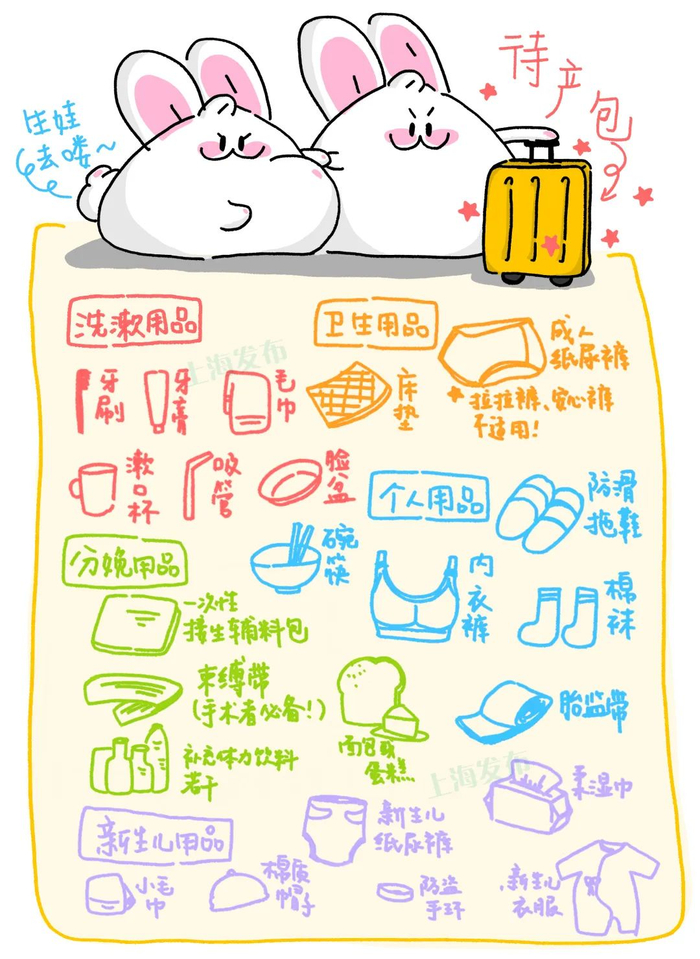 生娃
去喽~
待产包
洗漱用品
牙刷
牙膏
毛巾
漱口杯
吸管
脸盆
卫生用品
床垫
成人
纸尿裤
拉拉裤、安心裤
不适用!
个人用品
防滑
拖鞋
碗筷
内衣裤
棉袜
胎监带
分娩用品
一次性
接生辅料包
束缚带
(手术者必备!)
补充体力饮料
若干
面包或
蛋糕
新生儿用品
小毛巾
棉质
帽子
新生儿
纸尿裤
防盗
手环
柔湿巾
新生儿
衣服
上海发布
上海发布